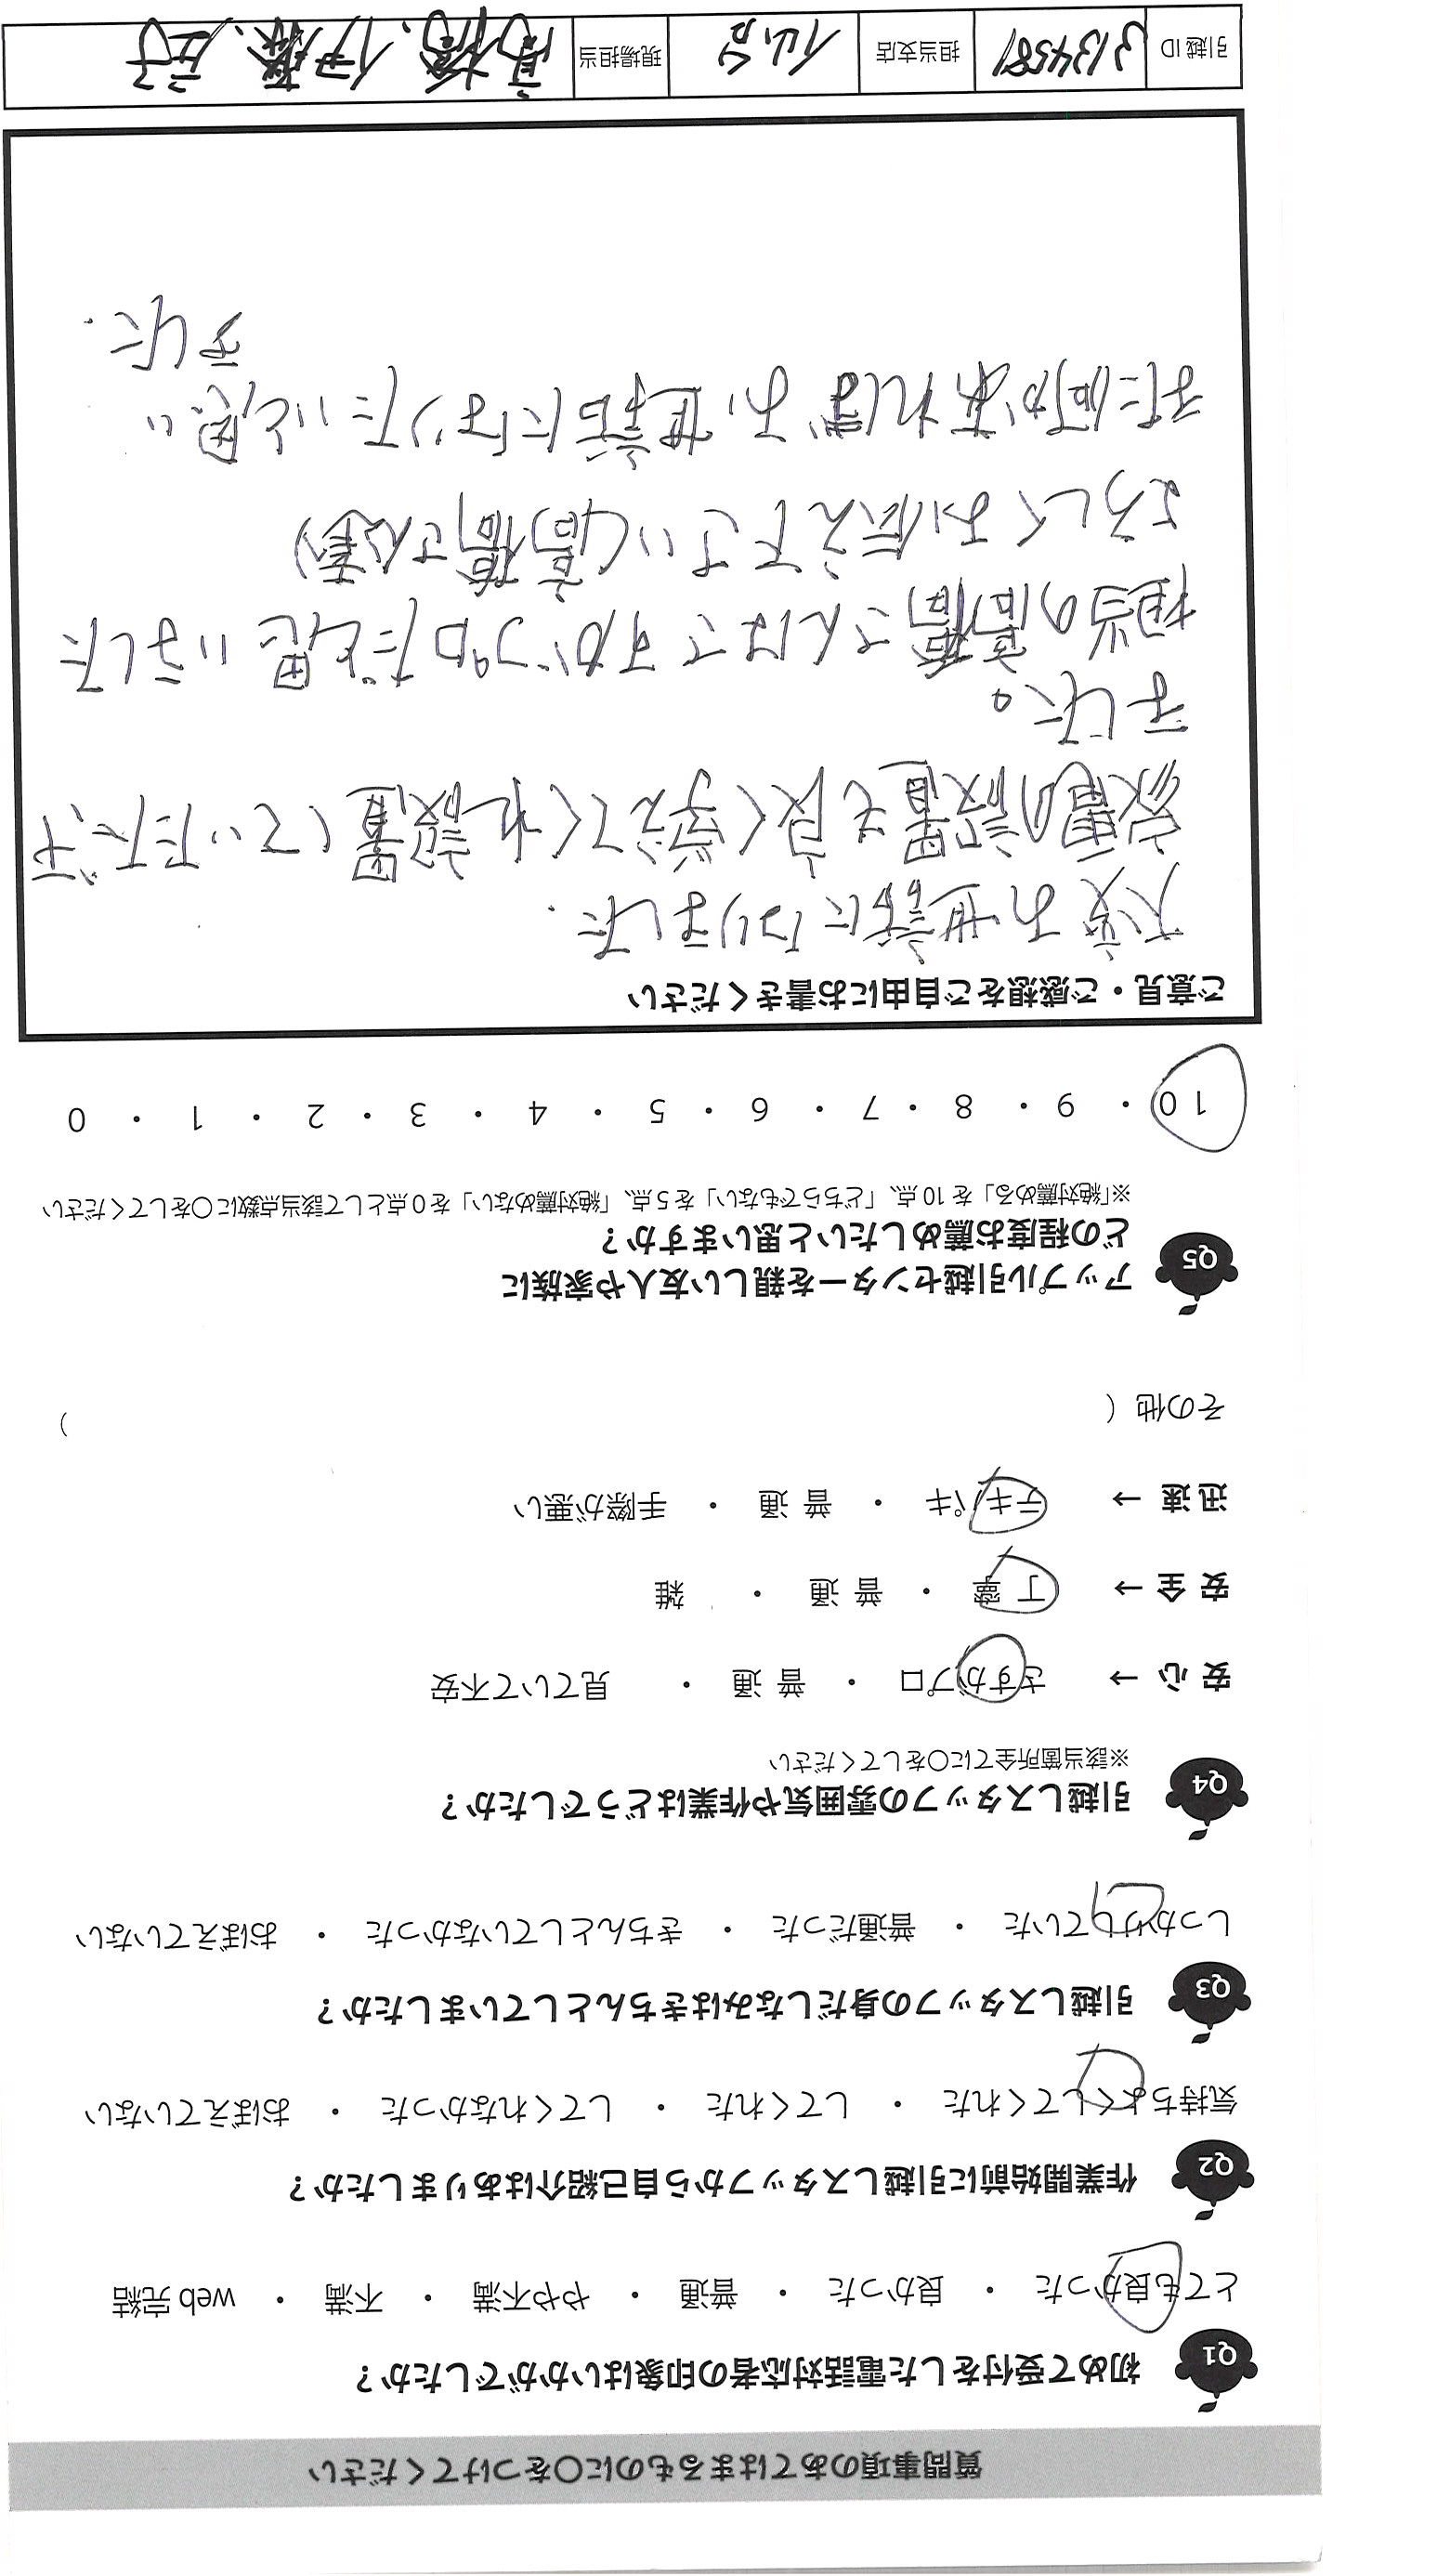 質問事項のあてはまるものに○をつけてください
Q1 初めて受付をした電話対応者の印象はいかがでしたか？
とても良かった ・ 良かった ・ 普通 ・ やや不満 ・ 不満 ・ web完結
Q2 作業開始前に引越しスタッフから自己紹介はありましたか？
気持ちよくしてくれた ・ してくれた ・ してくれなかった ・ おぼえていない
Q3 引越しスタッフの身だしなみはきちんとしていましたか？
しっかりしていた ・ 普通だった ・ きちんとしていなかった ・ おぼえていない
Q4 引越しスタッフの雰囲気や作業はどうでしたか？
※該当箇所全てに○をしてください
安心 → さすがプロ ・ 普通 ・ 見ていて不安
安全 → 丁寧 ・ 普通 ・ 雑
迅速 → テキパキ ・ 普通 ・ 手際が悪い
その他（ ）
Q5 アップル引越センターを親しい友人や家族に
どの程度お薦めしたいと思いますか？
※「絶対薦める」を10点、「どちらでもない」を5点、「絶対薦めない」を0点として該当点数に○をしてください
10 ・ 9 ・ 8 ・ 7 ・ 6 ・ 5 ・ 4 ・ 3 ・ 2 ・ 1 ・ 0
ご意見・ご感想をご自由にお書きください
大変お世話になりました.
家電の設置も良く考えてくれ設置していただき
ました。
担当の高橋さんはさすがプロだと思いました
よろしくお伝え下さい(高橋さん)
また何か有れば お世話になりたいと思い
ました.
引越ID 3134589 担当支店 仙台 現場担当 高橋、伊藤、